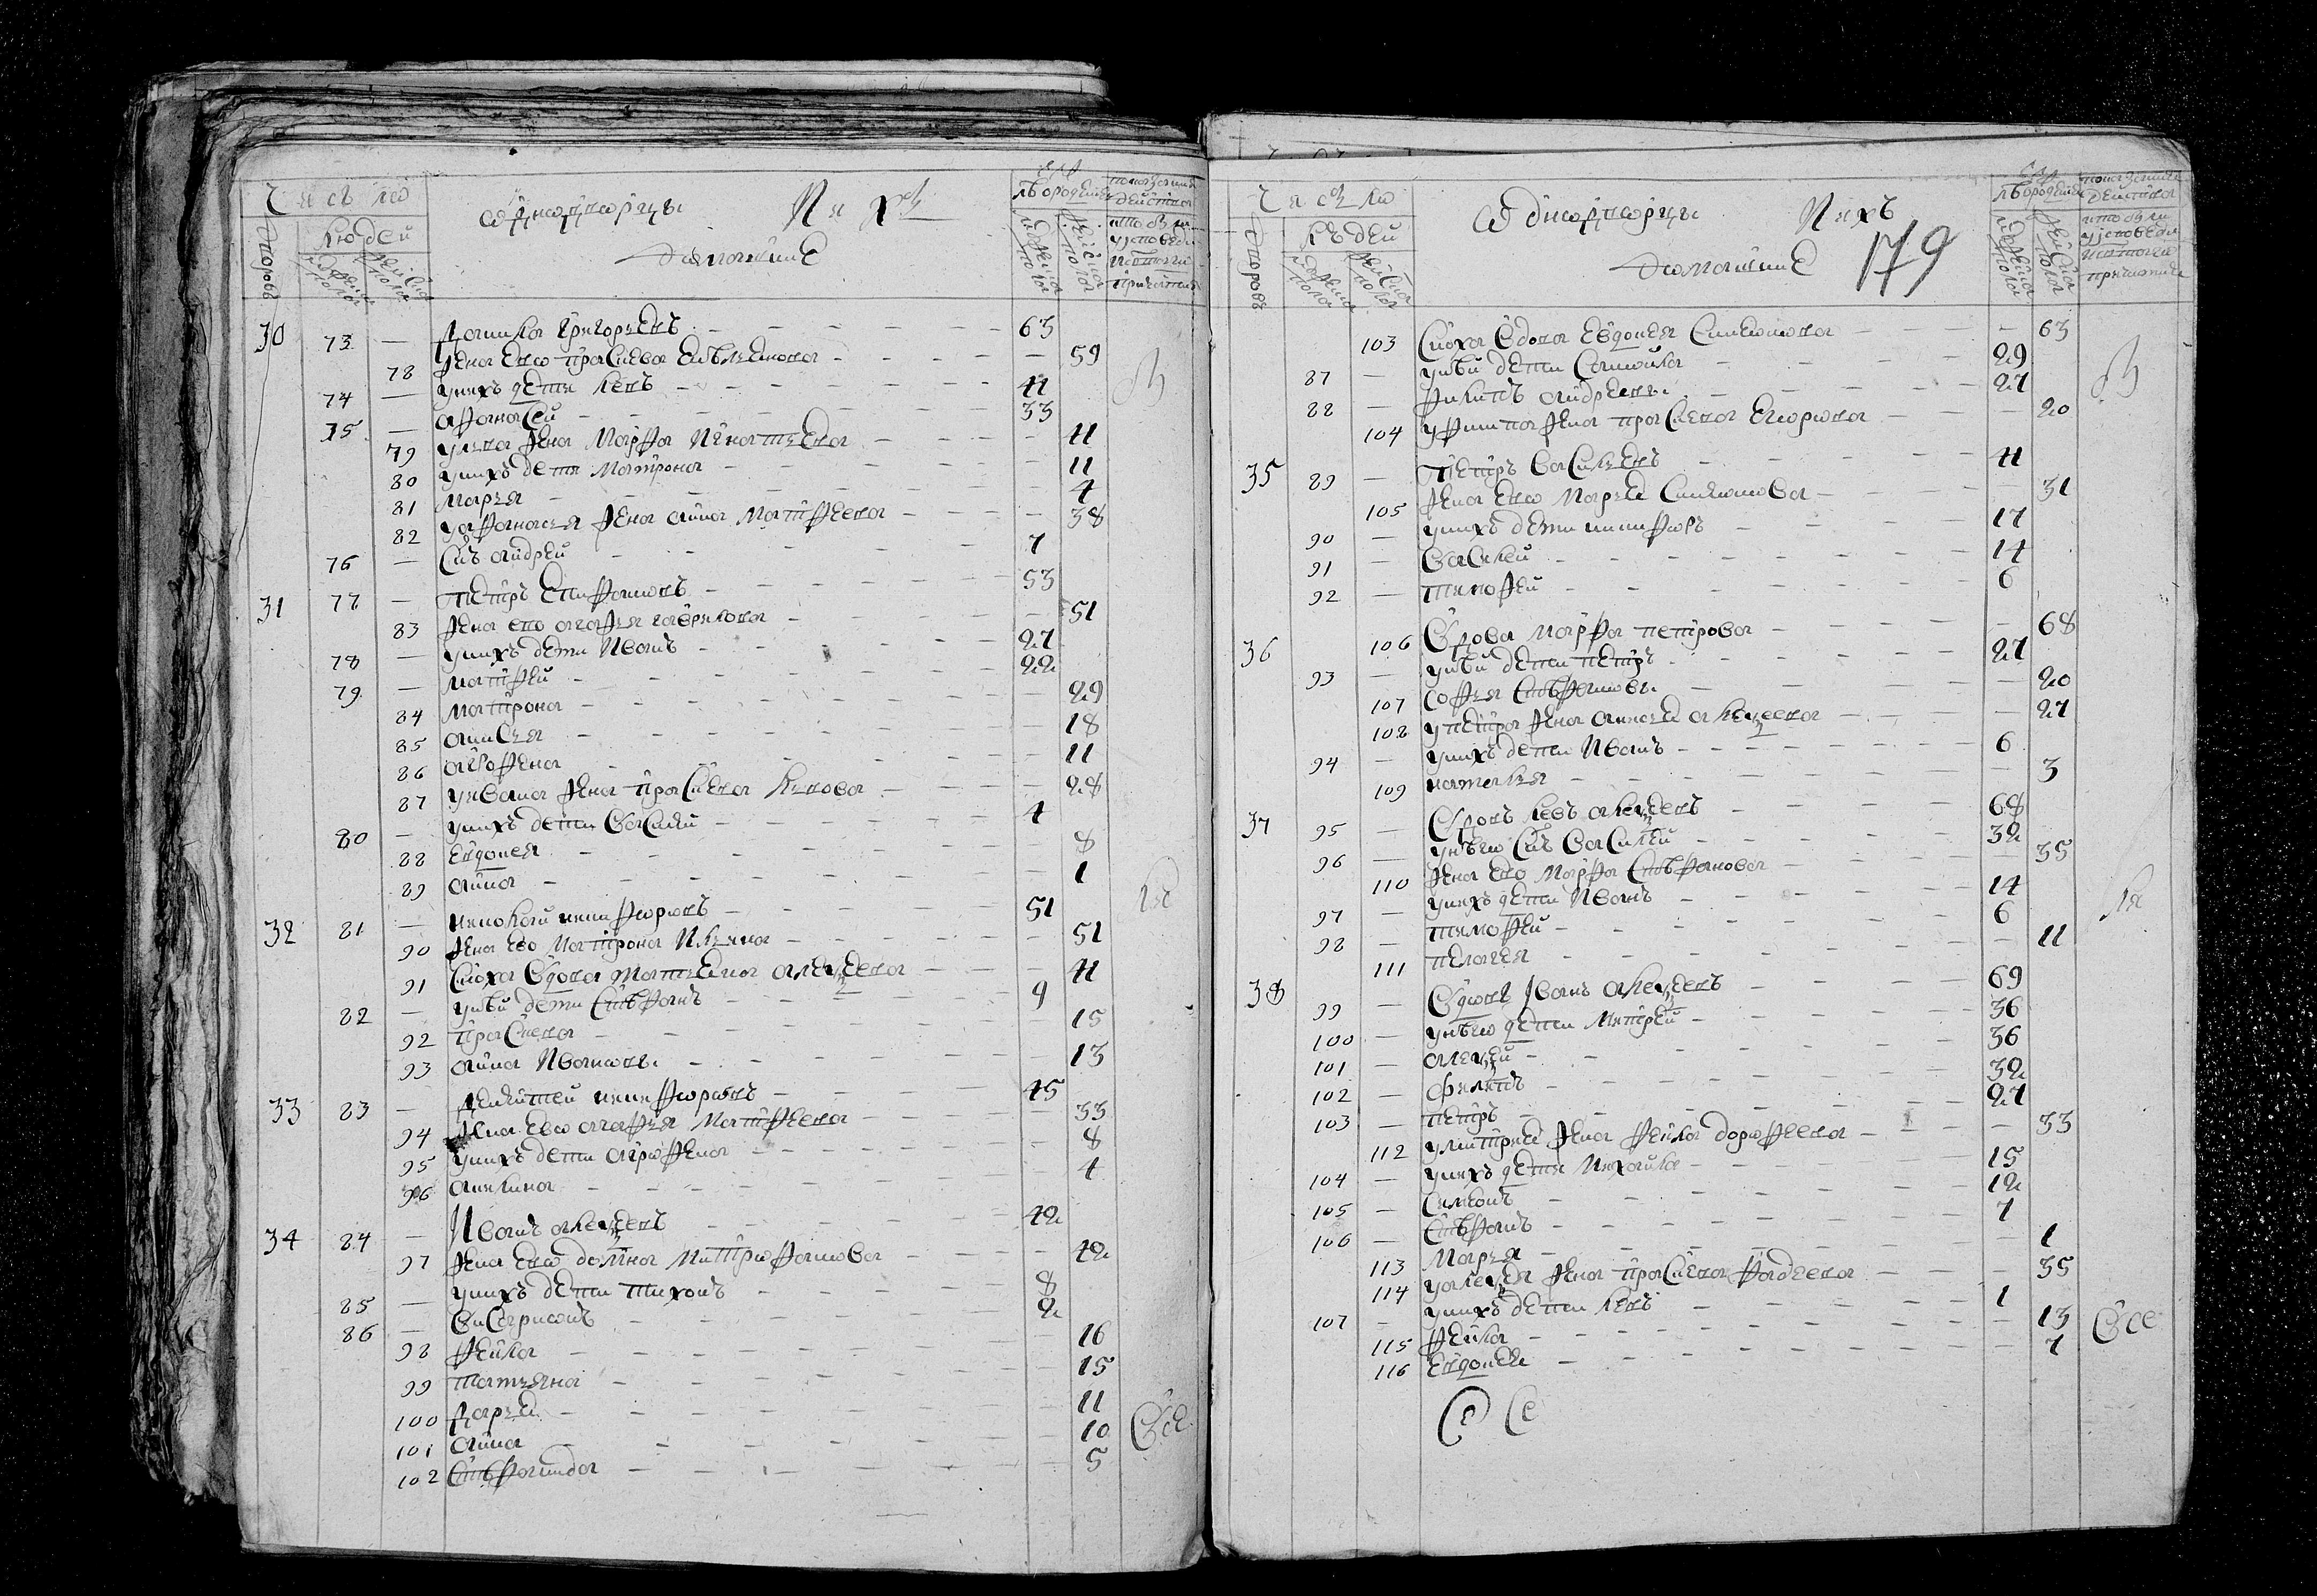 Число
Дворовъ
Людей
мужеска полу
женска полу
Однодворцы И ихъ
Домашние
Лѣ ѿ рождения
мужеска полу
женска полу
30 73 — Данила Григорьевъ 63
78 Жена ево Прасковья 59
74 — У нихъ дети Левъ 41
75 — Афонасей 33
79 У Лва жена Марфа Игнатьева 41
80 У нихъ дети Матрона 11
81 Марья 4
82 У Афонасья жена Анна Матфеева 38
76 — Сынъ Андрей 7
31 77 — Петръ Епифановъ 53
83 Жена ево Агафья Гаврилова 51
78 — У нихъ дети Иванъ 27
79 — Матфей 22
84 Матрона 29
85 Анисья 18
86 Агрофена 11
87 У Ивана жена Прасковья 28
80 — У нихъ дети Василей 4
88 Евдокея 8
89 Анна 1
32 81 — Никифоровъ 51
90 Жена ево Матрона 51
91 Сноха вдова Алексеева 41
82 — У ней дети Стефанъ 9
92 Прасковья 15
93 Анна Ивановы 13
33 83 — Дементей Никифоровъ 45
94 Жена ево Агафья Матфеева 33
95 У нихъ дети Агрофена 8
96 Акилина 4
34 84 — Иванъ Алексеевъ 42
97 Жена ево Домна Митрофанова 42
85 — У нихъ дети Тихонъ 8
86 — Висарионъ 2
98 Фекла 16
99 Татьяна 15
100 Дарья 11
101 Анна 10
102 Стефанида 5
Число
Дворовъ
Людей
мужеска полу
женска полу
Однодворцы И ихъ
Домашние
179
Лѣ ѿ рождения
мужеска полу
женска полу
103 Сноха вдова Евдокея Симионова 63
87 — У ней дети Самойла 29
88 — Филипъ Андреевы 27
104 У Филипа жена Прасковья Егорова 20
35 89 — Петръ Васильевъ 41
105 Жена ево Марья Симионова 31
90 — У нихъ дети Никифоръ 17
91 — Василей 14
92 — Тимофей 6
36 106 Вдова Марфа Петрова 68
93 — У ней дети Петръ 27
107 Софья Стефановы 20
108 У Петра жена Алексеева 27
94 — У нихъ дети Иванъ 6
109 Наталья 3
37 95 — Вдовъ Левъ Алексеевъ 68
96 — У него сынъ Василей 32
110 Жена ево Марфа Стефанова 35
97 — У нихъ дети Иванъ 14
98 — Тимофей 6
111 Пелагея 11
38 99 — Вдовъ Иванъ Алексеевъ 69
100 — У него дети Митрей 36
101 — Алексей 36
102 — Филипъ 32
103 — Петръ 27
112 У Митрея жена Фекла Дорофеева 33
104 — У нихъ дети Михайла 15
105 — Симеонъ 12
106 — Стефанъ 7
113 Марья 1
114 У Алексея жена Прасковья Фадеева 35
107 — У нихъ дети Левъ 1
115 Фекла 13
116 Евдокея 7